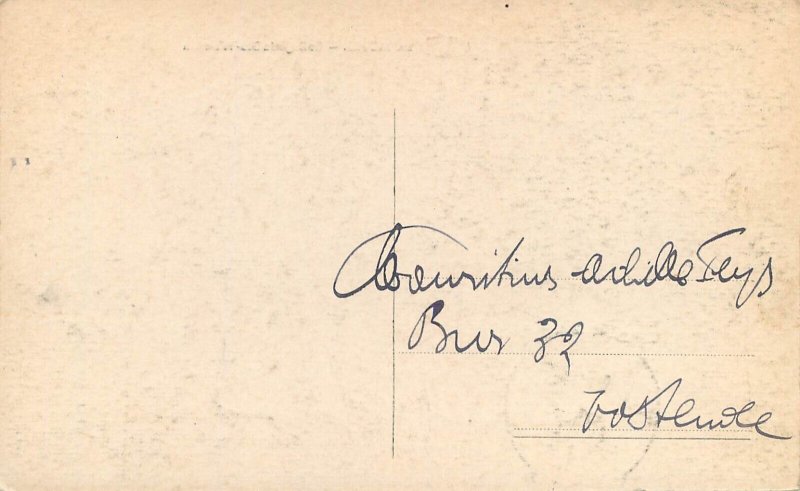 Mauritius Achille Feys
Bus 32
Oostende